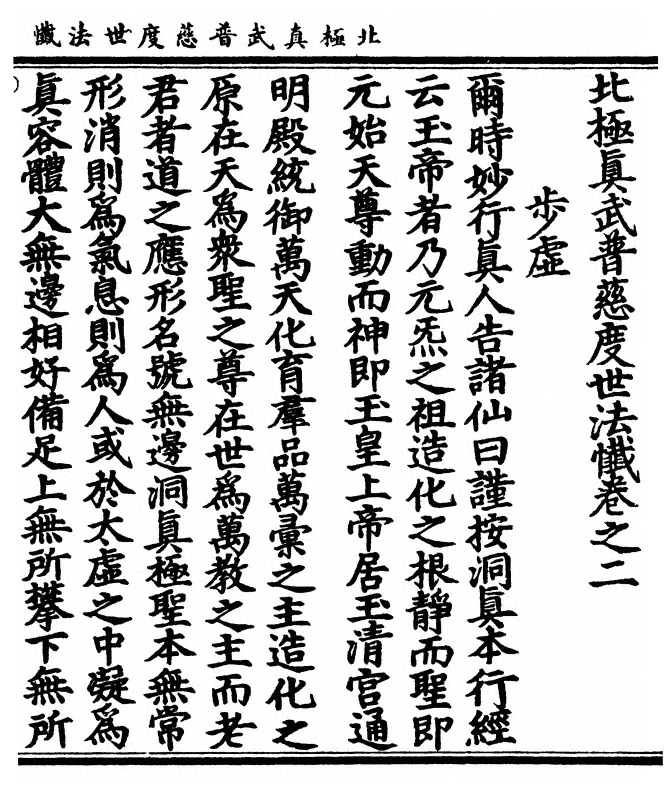 北極真武普慈度世法懺
北極眞武普慈度世法懺卷之二
步虛
爾時妙行眞人告諸仙曰謹按洞眞本行經
云玉帝者乃元炁之祖造化之根靜而聖即
元始天尊動而神即玉皇上帝居玉清宮通
明殿統御萬天化育羣品萬彙之主造化之
原在天爲衆聖之尊在世爲萬教之主而老
君者道之應形名號無邊洞眞極聖本無常
形消則爲氣息則爲人或於太虛之中凝爲
眞容體大無邊相好備足上無所攀下無所